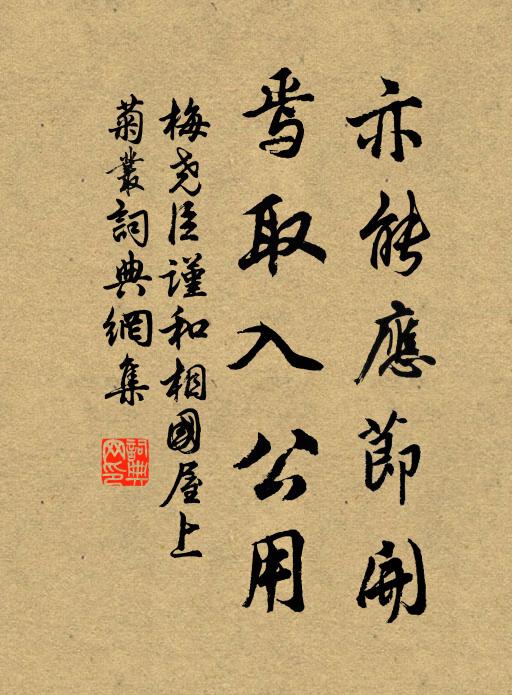 亦能應節開
焉取入公用
梅堯臣謹和相國屋上
菊叢詞典網集
詞典
网印